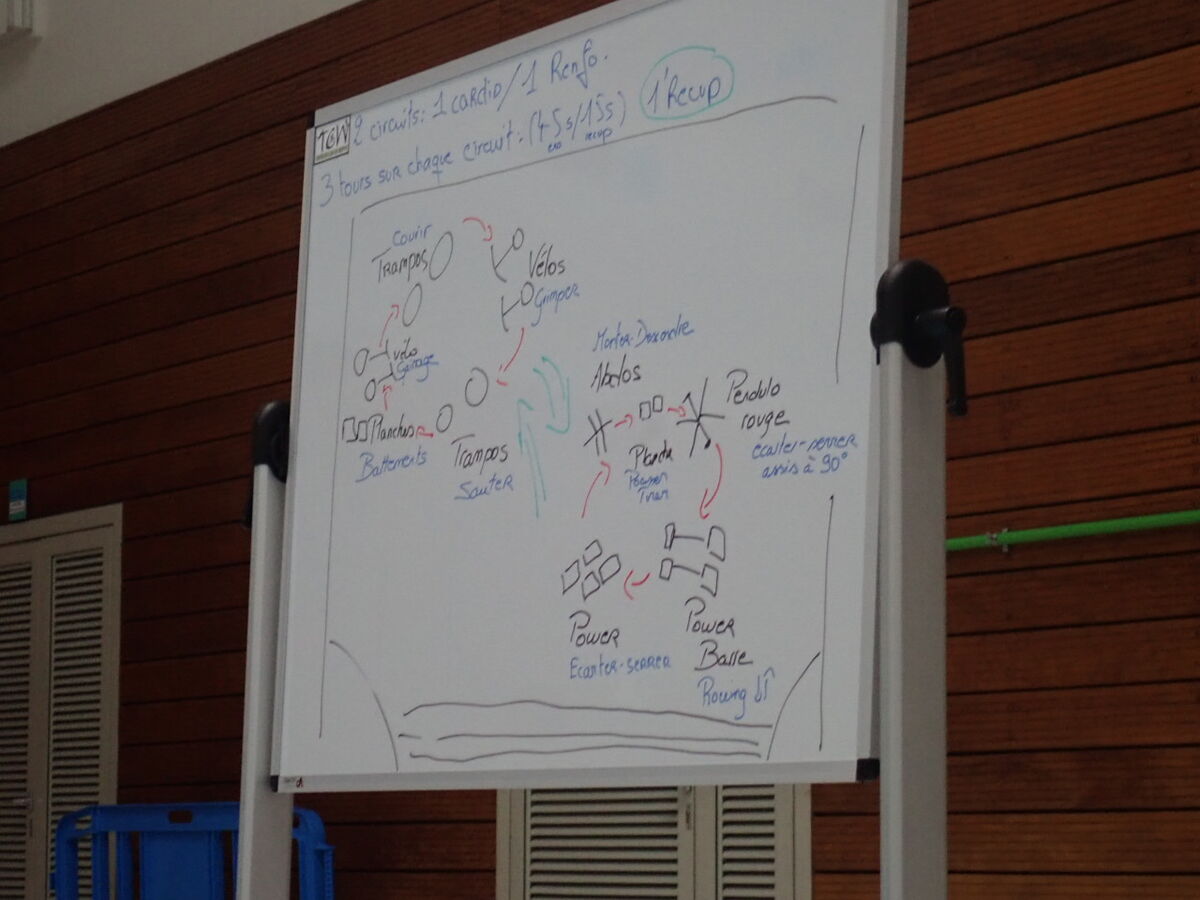 TGW
2 circuits: 1 cardio/1 Renfo.
3 tours sur chaque circuit: (45s/15s)
exo
recup
1' Recup
Courir
Trampos
Vélos
Grimper
vélo
Gainage
Planches
Battements
Trampos
Sauter
Monter-Descendre
Planche
Pousser
Tirer
Pendulo
rouge
écarter-serrer
assis à 90°
Power
Ecarter-serrer
Power
Barre
Rowing ↓↑